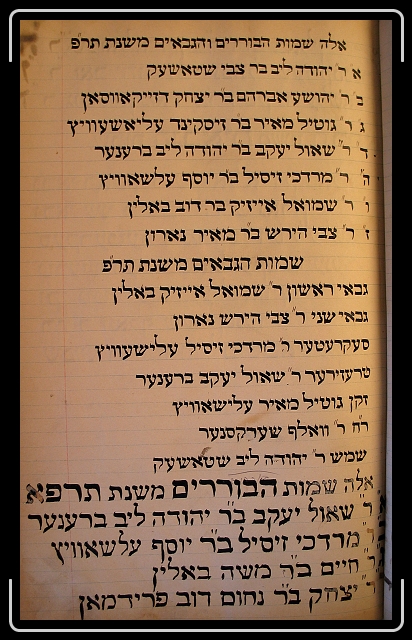 אלה שמות הבוררים והגבאים משנת תר״פ
א׳ ר׳ יהודה ליב בר צבי שטאשעק
ב׳ ר׳ יהושע אברהם בר יצחק דזייקאווסאן
ג׳ ר׳ גוטיל מאיר בר זיסקינד עליאשעוויץ
ד׳ ר׳ שאול יעקב בר יהודה ליב ברענער
ה׳ ר׳ מרדכי זיסיל בר יוסף עלשאוויץ
ו׳ ר׳ שמואל אייזיק בר דוב באלין
ז׳ ר׳ צבי הירש בר מאיר נארון
שמות הגבאים משנת תר״פ
גבאי ראשון ר׳ שמואל אייזיק באלין
גבאי שני ר׳ צבי הירש נארון
סעקרעטער ר׳ מרדכי זיסיל עלישעוויץ
טרעזירער ר׳ שאול יעקב ברענער
זקן גוטיל מאיר עלישאוויץ
ר״ח ר׳ וואלף שערקסנער
שמש ר׳ יהודה ליב שטאשעק
אלה שמות הבוררים משנת תרפא
ר׳ שאול יעקב ב״ר יהודה ליב ברענער
ר׳ מרדכי זיסיל ב״ר יוסף עלשאוויץ
ר׳ חיים ב״ר משה באלין
ר׳ יצחק ב״ר נחום דוב פרידמאן